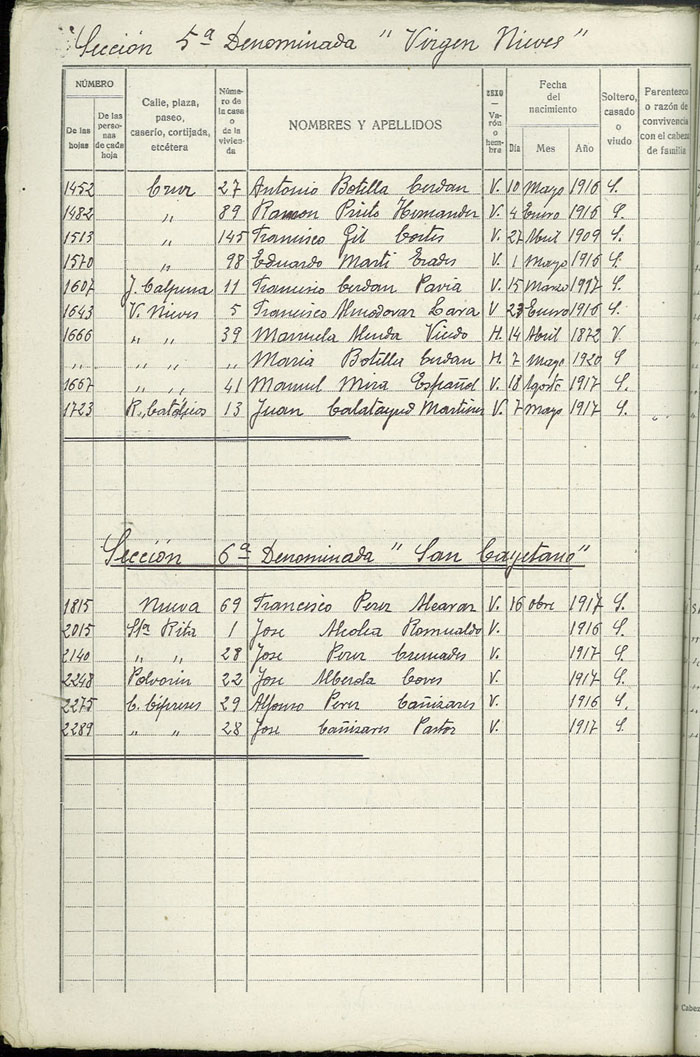 Sección 5ª Denominada "Virgen Nieves"
NÚMERO
De las hojas
De las personas de cada hoja
Calle, plaza, paseo, caserío, cortijada, etcétera
Número de la casa o de la vivienda
NOMBRES Y APELLIDOS
SEXO — Varón o hembra
Fecha del nacimiento
Día Mes Año
Soltero, casado o viudo
Parentesco o razón de convivencia con el cabeza de familia
1452 Cruz 27 Antonio Botilla Cerdan V. 10 Mayo 1916 S.
1482 " 89 Ramon Prieto Hernandez V. 4 Enero 1916 S.
1513 " 145 Francisco Gil Cortes V. 27 Abril 1909 S.
1570 " 98 Eduardo Marti V. 1 Mayo 1916 S.
1607 J. Calpena 11 Francisco Cerdan Pavia V. 15 Marzo 1917 S.
1643 V. Nieves 5 Francisco Almodovar Lara V 23 Enero 1916 S.
1666 " " 39 Manuela H. 14 Abril 1872 V.
" " " " Maria Botilla Cerdan H 7 Mayo 1920 S
1667 " " 41 Manuel Mira Español V. 18 Agosto 1917 S.
1723 R. Católicos 13 Juan Calatayud Martinez V. 7 Mayo 1917 S.
Sección 6ª Denominada "San Cayetano"
1815 Nueva 69 Francisco Perez V. 16 obre 1917 S.
2015 Stª Rita 1 Jose Alcolea Romualdo V. 1916 S.
2140 " " 28 Jose Perez Cremades V. 1917 S.
2248 Polvorin 22 Jose Alberola Coves V. 1917 S.
2275 C. Cipreses 29 Alfonso Perez Cañizares V. 1916 S.
2289 " " 28 Jose Cañizares Pastor V. 1917 S.